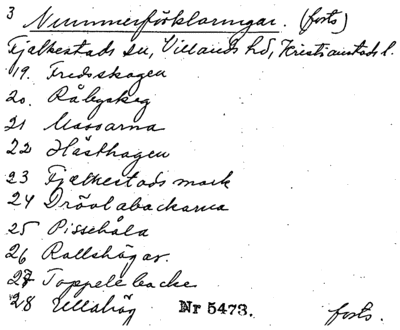 3 Nummerförklaringar. (forts)
Fjälkestads sn, Villands hd, Kristianstads l.
19. Fredsskogen
20. Råbyskog
21 Mossarna
22 Hästhagen
23 Fjälkestads mark
24 Drövlabackarna
25 Pissehåla
26 Rallshögar.
27 Toppelebacke
28 Lillahög Nr 5473. forts.